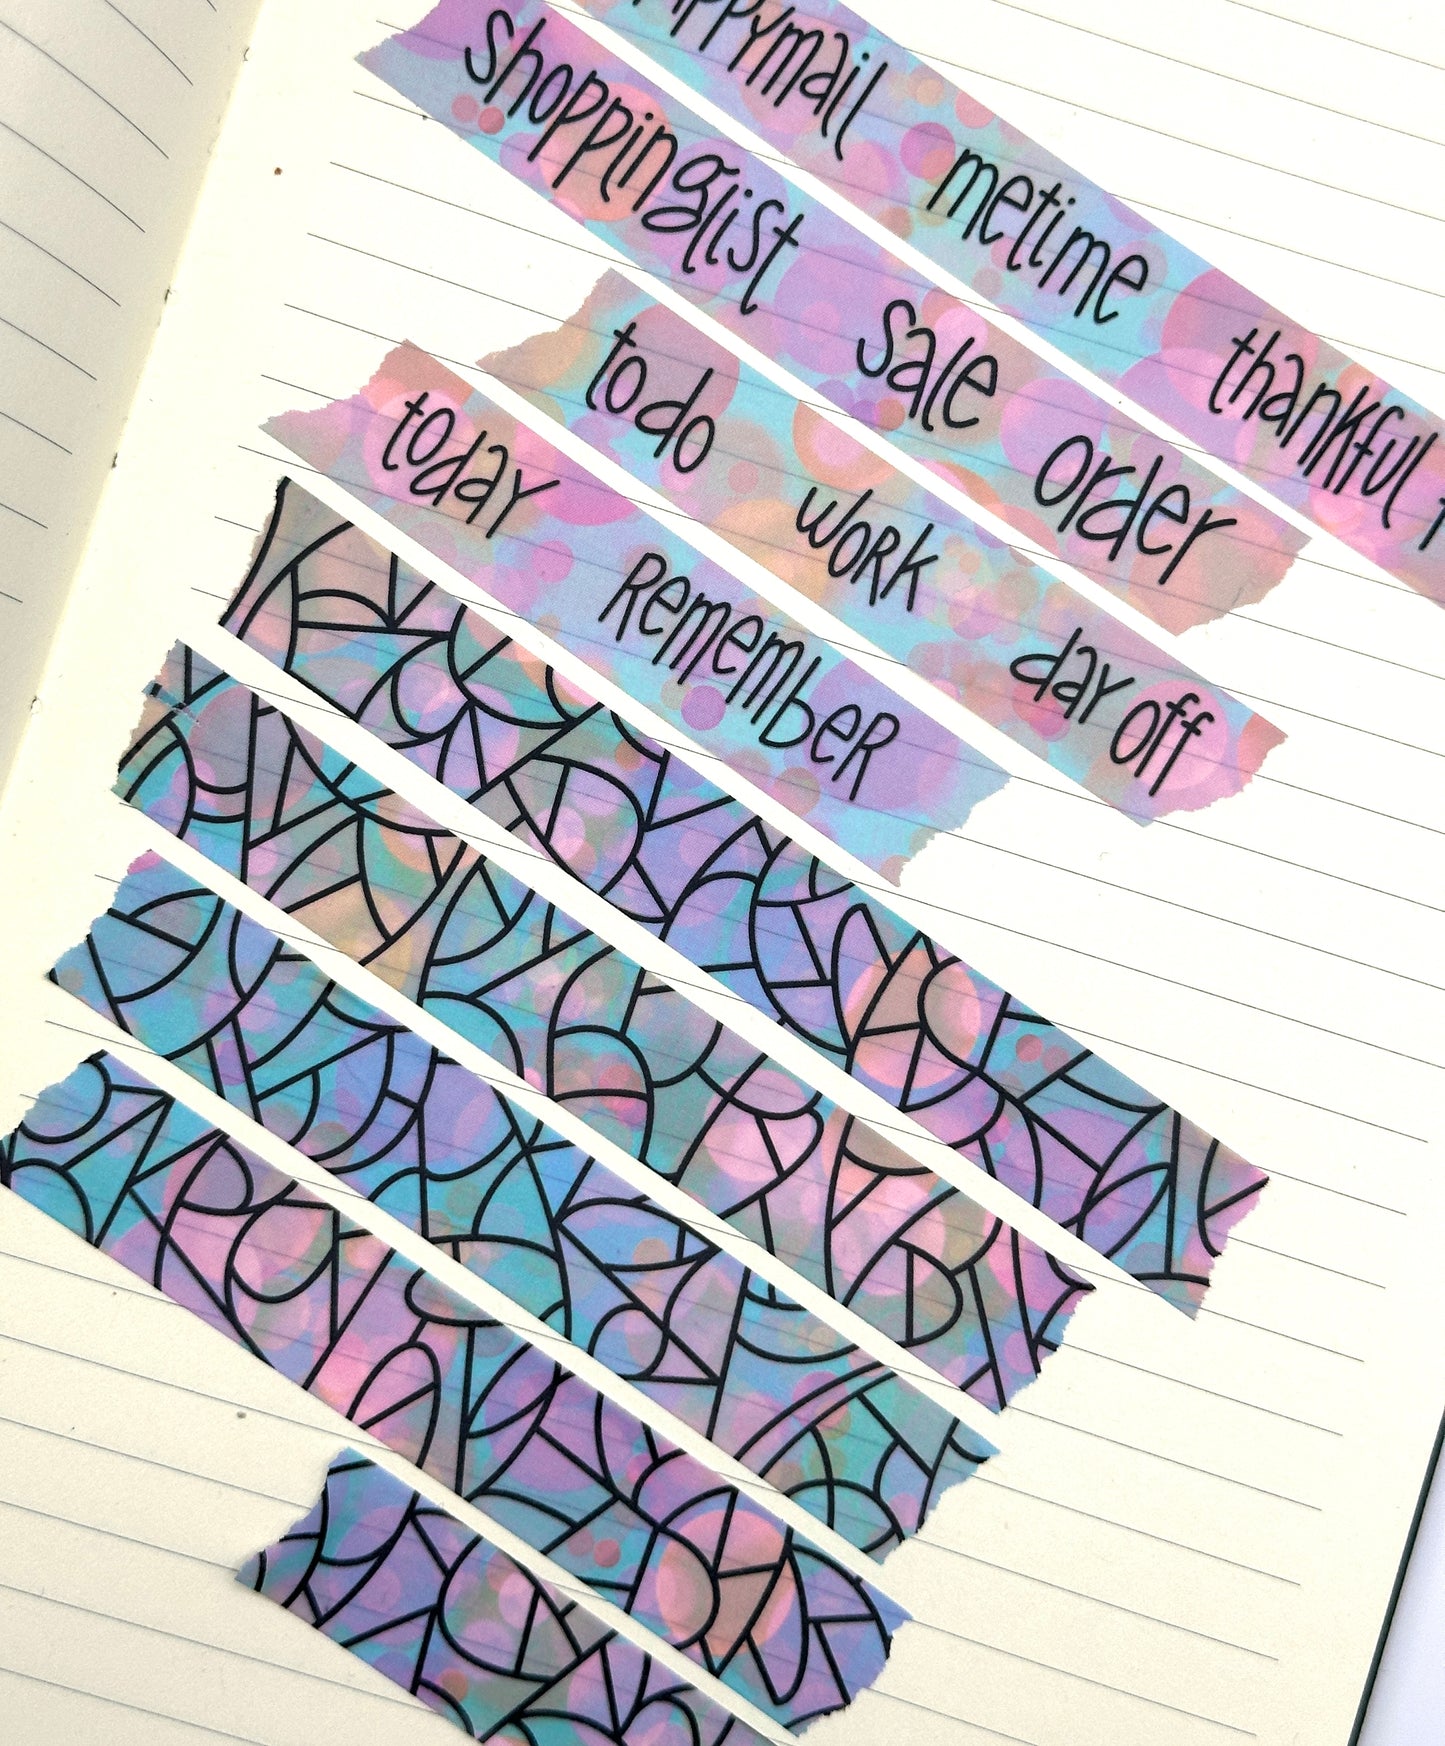 metime thankful
shoppinglist sale order
to do work day off
today Remember